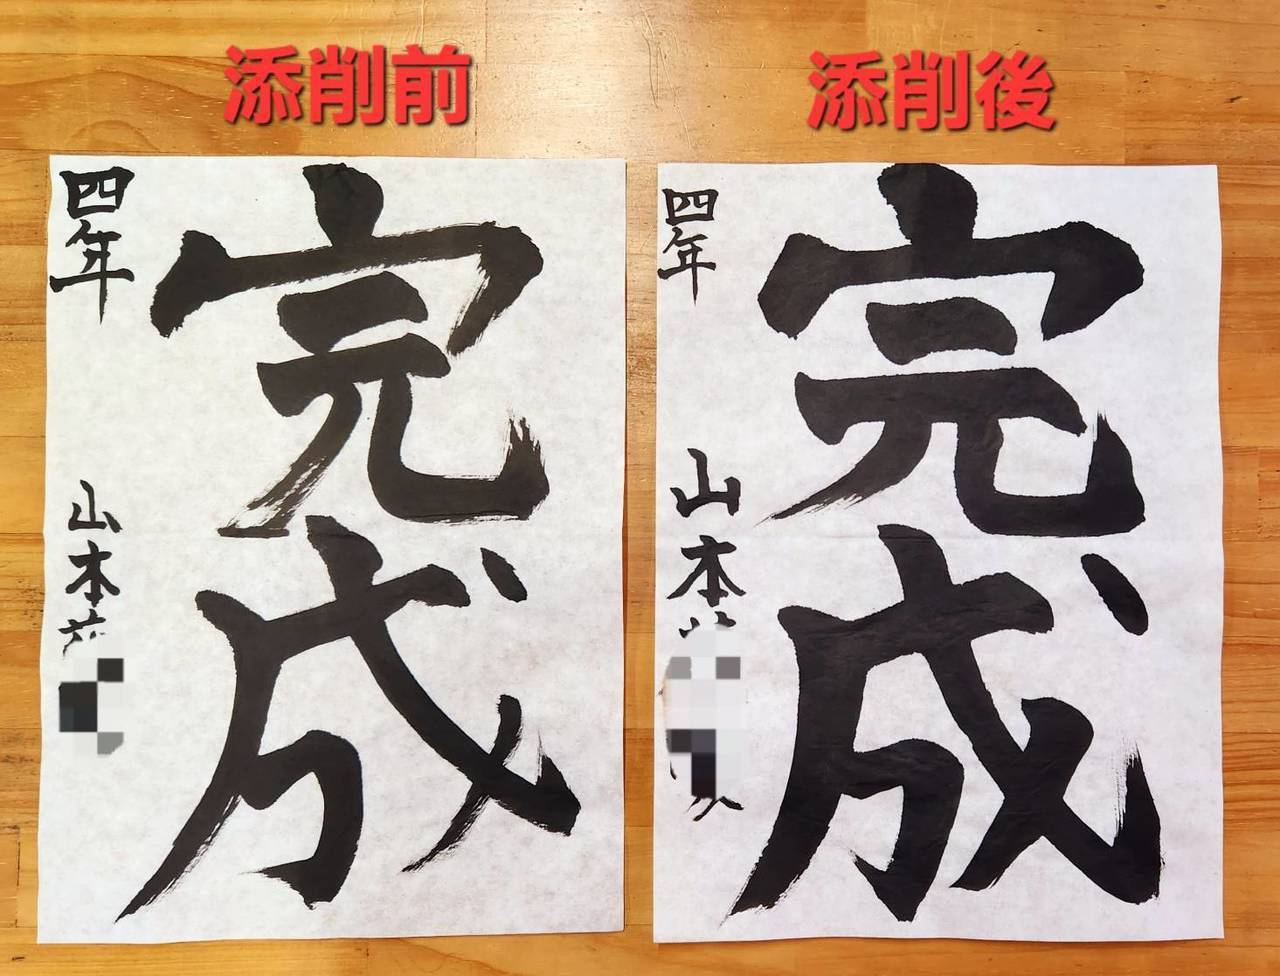 添削前
添削後
完成
四年
山本
完成
四年
山本